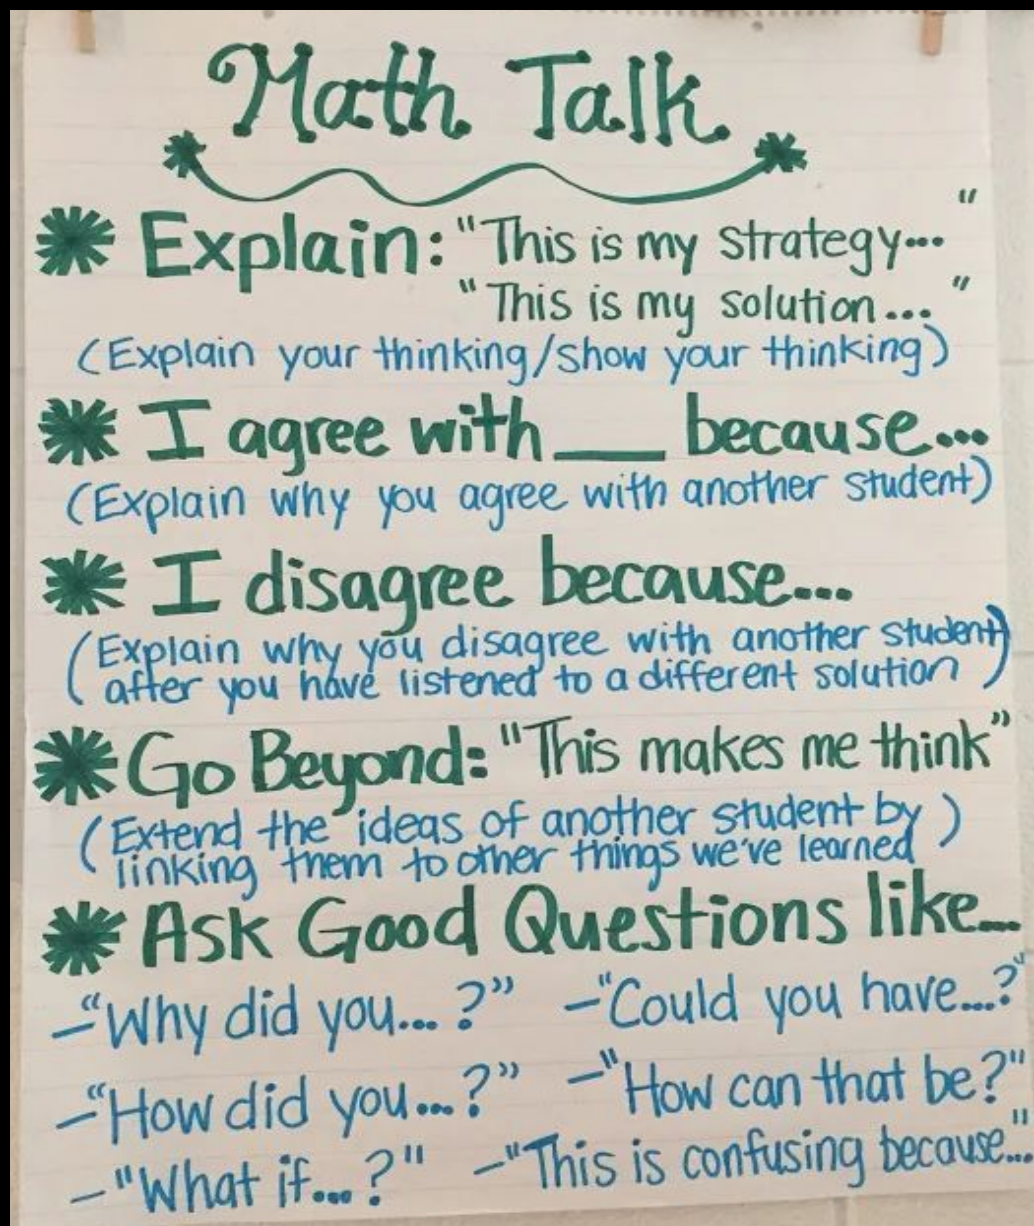 Math Talk
Explain: "This is my strategy..."
"This is my solution..."
(Explain your thinking/show your thinking)
I agree with ___ because...
(Explain why you agree with another student)
I disagree because...
(Explain why you disagree with another student
after you have listened to a different solution)
Go Beyond: "This makes me think"
(Extend the ideas of another student by
linking them to other things we've learned)
Ask Good Questions like...
-"Why did you...?" -"Could you have...?"
-"How did you...?" -"How can that be?"
-"What if...?" -"This is confusing because..."